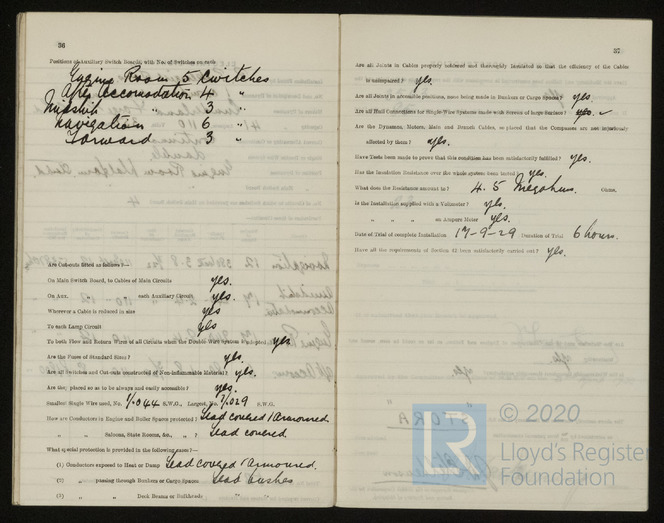 36
Positions of Auxiliary Switch Boards, with No. of Switches on each
Engine Room 5 Switches
After Accomodation 4 "
Midship " 3 "
Navigation 6 "
Forward 3 "
Are Cut-outs fitted as follows?—
On Main Switch Board, to Cables of Main Circuits yes.
On Aux. " " each Auxiliary Circuit yes.
Wherever a Cable is reduced in size yes
To each Lamp Circuit yes
To both Flow and Return Wires of all Circuits when the Double Wire System is adopted yes
Are the Fuses of Standard Sizes? yes.
Are all Switches and Cut-outs constructed of Non-inflammable Material? yes.
Are they placed so as to be always and easily accessible? yes.
Smallest Single Wire used, No. 1/.044 S.W.G., Largest, No. 7/.029 S.W.G.
How are Conductors in Engine and Boiler Spaces protected? Lead covered & Armoured
" " Saloons, State Rooms, &c., " ? Lead covered.
What special protection is provided in the following cases?—
(1) Conductors exposed to Heat or Damp Lead covered & armoured.
(2) " passing through Bunkers or Cargo Spaces Lead bushes
(3) " " Deck Beams or Bulkheads " "
37
Are all Joints in Cables properly soldered and thoroughly insulated so that the efficiency of the Cables
is unimpaired? yes.
Are all Joints in accessible positions, none being made in Bunkers or Cargo Spaces? yes.
Are all Hull Connections for Single-Wire Systems made with Screws of large Surface? yes.
Are the Dynamos, Motors, Main and Branch Cables, so placed that the Compasses are not injuriously
affected by them? yes.
Have Tests been made to prove that this condition has been satisfactorily fulfilled? yes.
Has the Insulation Resistance over the whole system been tested? yes.
What does the Resistance amount to? 4.5 Megohms. Ohms.
Is the Installation supplied with a Voltmeter? yes.
" " " an Ampere Meter yes.
Date of Trial of complete Installation 17-9-29 Duration of Trial 6 hours.
Have all the requirements of Section 42 been satisfactorily carried out? yes.
LR
© 2020
Lloyd's Register
Foundation